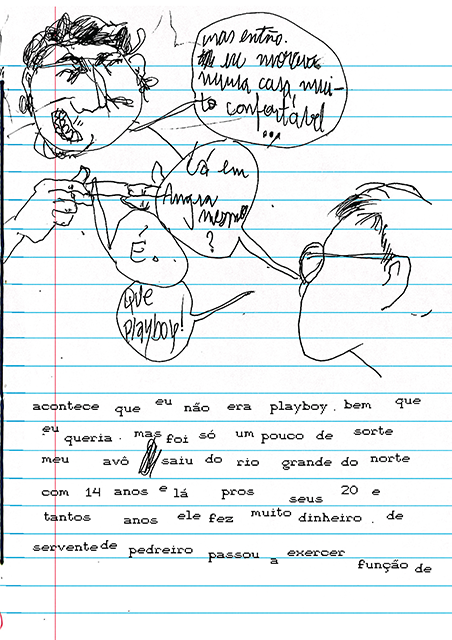 mas então.
eu morava
numa casa mui-
to confortável
...
Lá em
Angra
mesmo
?
É.
QUE
PLAYBOY!
acontece que eu não era playboy. bem que
eu queria. mas foi só um pouco de sorte
meu avô saiu do rio grande do norte
com 14 anos e lá pros seus 20 e
tantos anos ele fez muito dinheiro. de
servente de pedreiro passou a exercer
função de